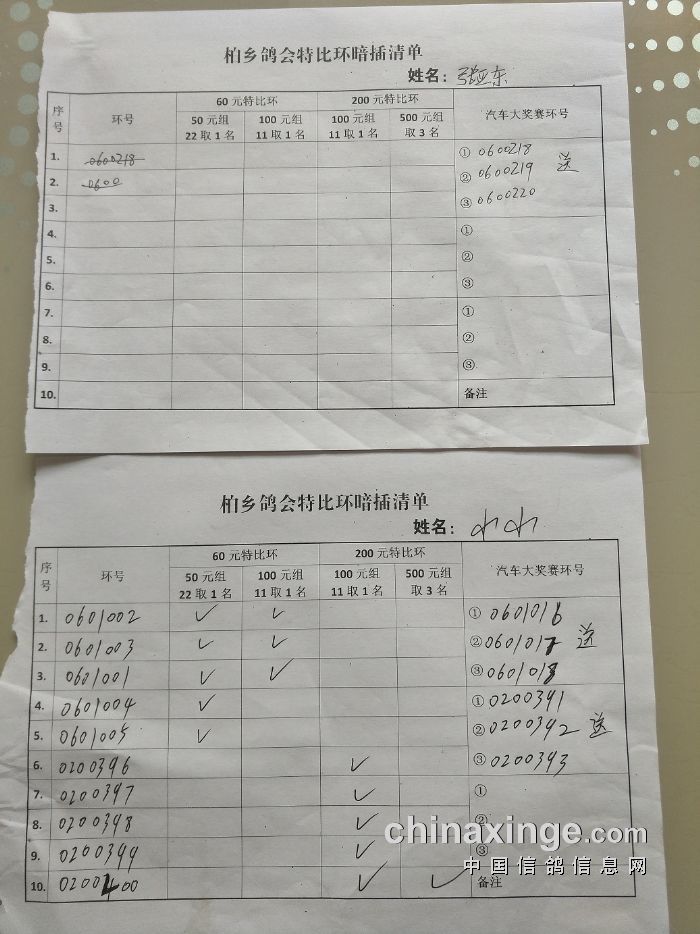 柏乡鸽会特比环暗插清单
姓名：张亚东
序号 环号 60元特比环 200元特比环 汽车大奖赛环号
50元组 22取1名 100元组 11取1名 100元组 11取1名 500元组 取3名
1. 0600218 ① 0600218
2. 0600 ② 0600219 送
3. ③ 0600220
4. ①
5. ②
6. ③
7. ①
8. ②
9. ③
10. 备注
柏乡鸽会特比环暗插清单
姓名：
序号 环号 60元特比环 200元特比环 汽车大奖赛环号
50元组 22取1名 100元组 11取1名 100元组 11取1名 500元组 取3名
1. 0601002 ✓ ✓ ① 0601016
2. 0601003 ✓ ✓ ② 0601017 送
3. 0601001 ✓ ✓ ③ 0601018
4. 0601004 ✓ ① 0200391
5. 0601005 ✓ ② 0200392 送
6. 0200396 ✓ ③ 0200393
7. 0200397 ✓ ①
8. 0200398 ✓
9. 0200399 ✓ ③
10. 0200400 ✓ ✓ 备注
chinaxinge.com
中国信鸽信息网